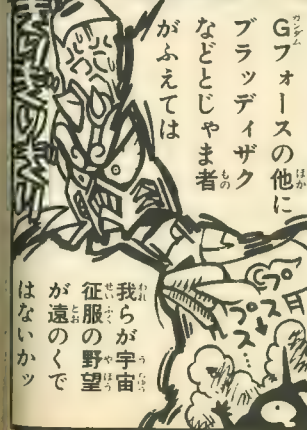 Gフォースの他に
ブラッディザク
などとじゃま者
がふえては
我らが宇宙
征服の野望
が遠のくで
はないかッ
プス
プス…